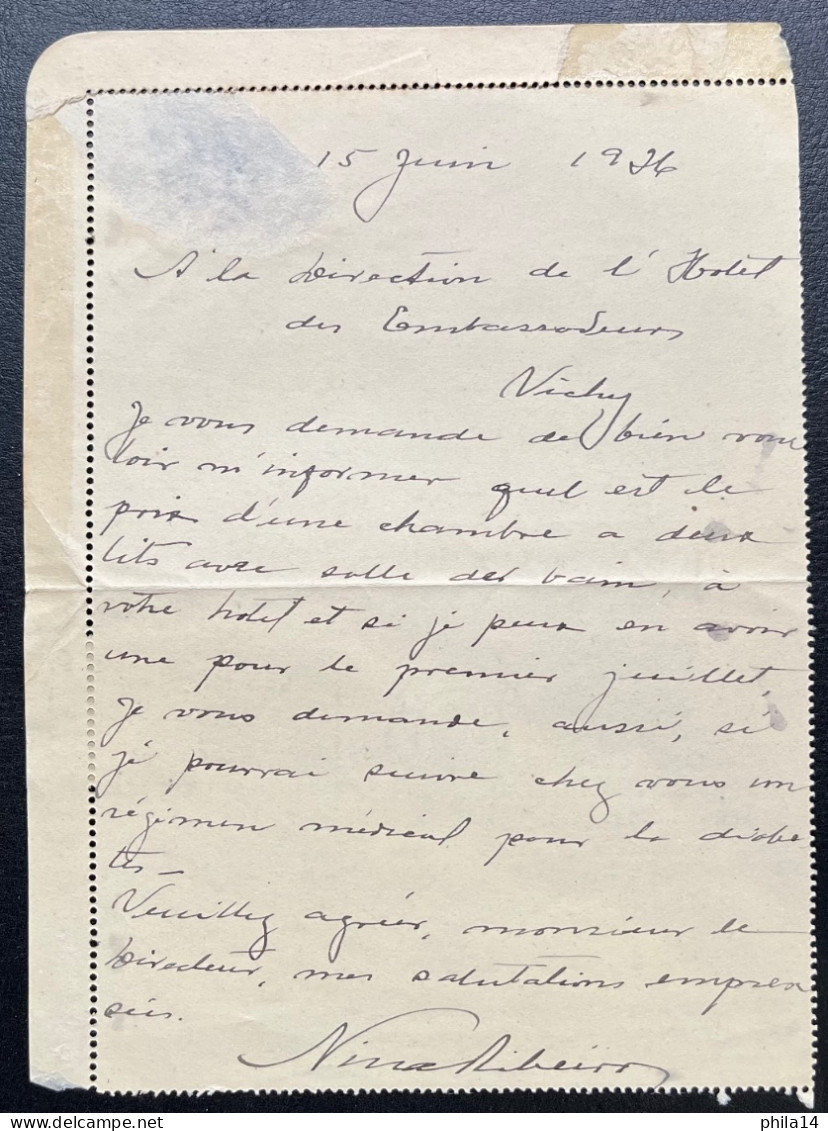 15 Juin 1926
A la Direction de l'Hotel
des Embassadeurs
Vichy
Je vous demande de bien vou
loir m'informer quel est le
prix d'une chambre a deux
lits avec salle des bain, à
votre hotel et si je peux en avoir
une pour le premier juillet.
Je vous demande, aussi, si
je pourrai suivre chez vous un
régimen médical pour la diabe
tes_
Veuillez agréer, monsieur le
Directeur, mes salutations empres
sées.
Nina Ribeiro
phila14